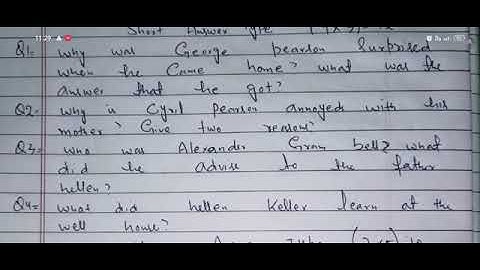 11:29
Short Answer Type
Q1. Why was George pearson Surprised
when he Came home? what was the
answer that he got?
Q2- why is Cyril Pearson annoyed with his
mother? Give two reasons?
Q3= who was Alexander Gram bell? what
did he advise to the father
hellen?
Q4= what did hellen Keller learn at the
well house?